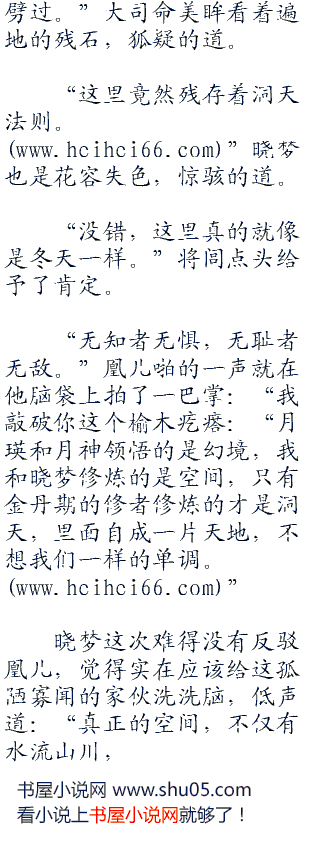 劈过。”大司命美眸看着遍
地的残石，狐疑的道。
“这里竟然残存着洞天
法则。
(www.hcihci66.com)”晓梦
也是花容失色，惊骇的道。
“没错，这里真的就像
是冬天一样。”将闾点头给
予了肯定。
“无知者无惧，无耻者
无敌。”凰儿啪的一声就在
他脑袋上拍了一巴掌：“我
敲破你这个榆木疙瘩：“月
瑛和月神领悟的是幻境，我
和晓梦修炼的是空间，只有
金丹期的修者修炼的才是洞
天，里面自成一片天地，不
想我们一样的单调。
(www.hcihci66.com)”
晓梦这次难得没有反驳
凰儿，觉得实在应该给这孤
陋寡闻的家伙洗洗脑，低声
道：“真正的空间，不仅有
水流山川，
书屋小说网 www.shu05.com
看小说上书屋小说网就够了！